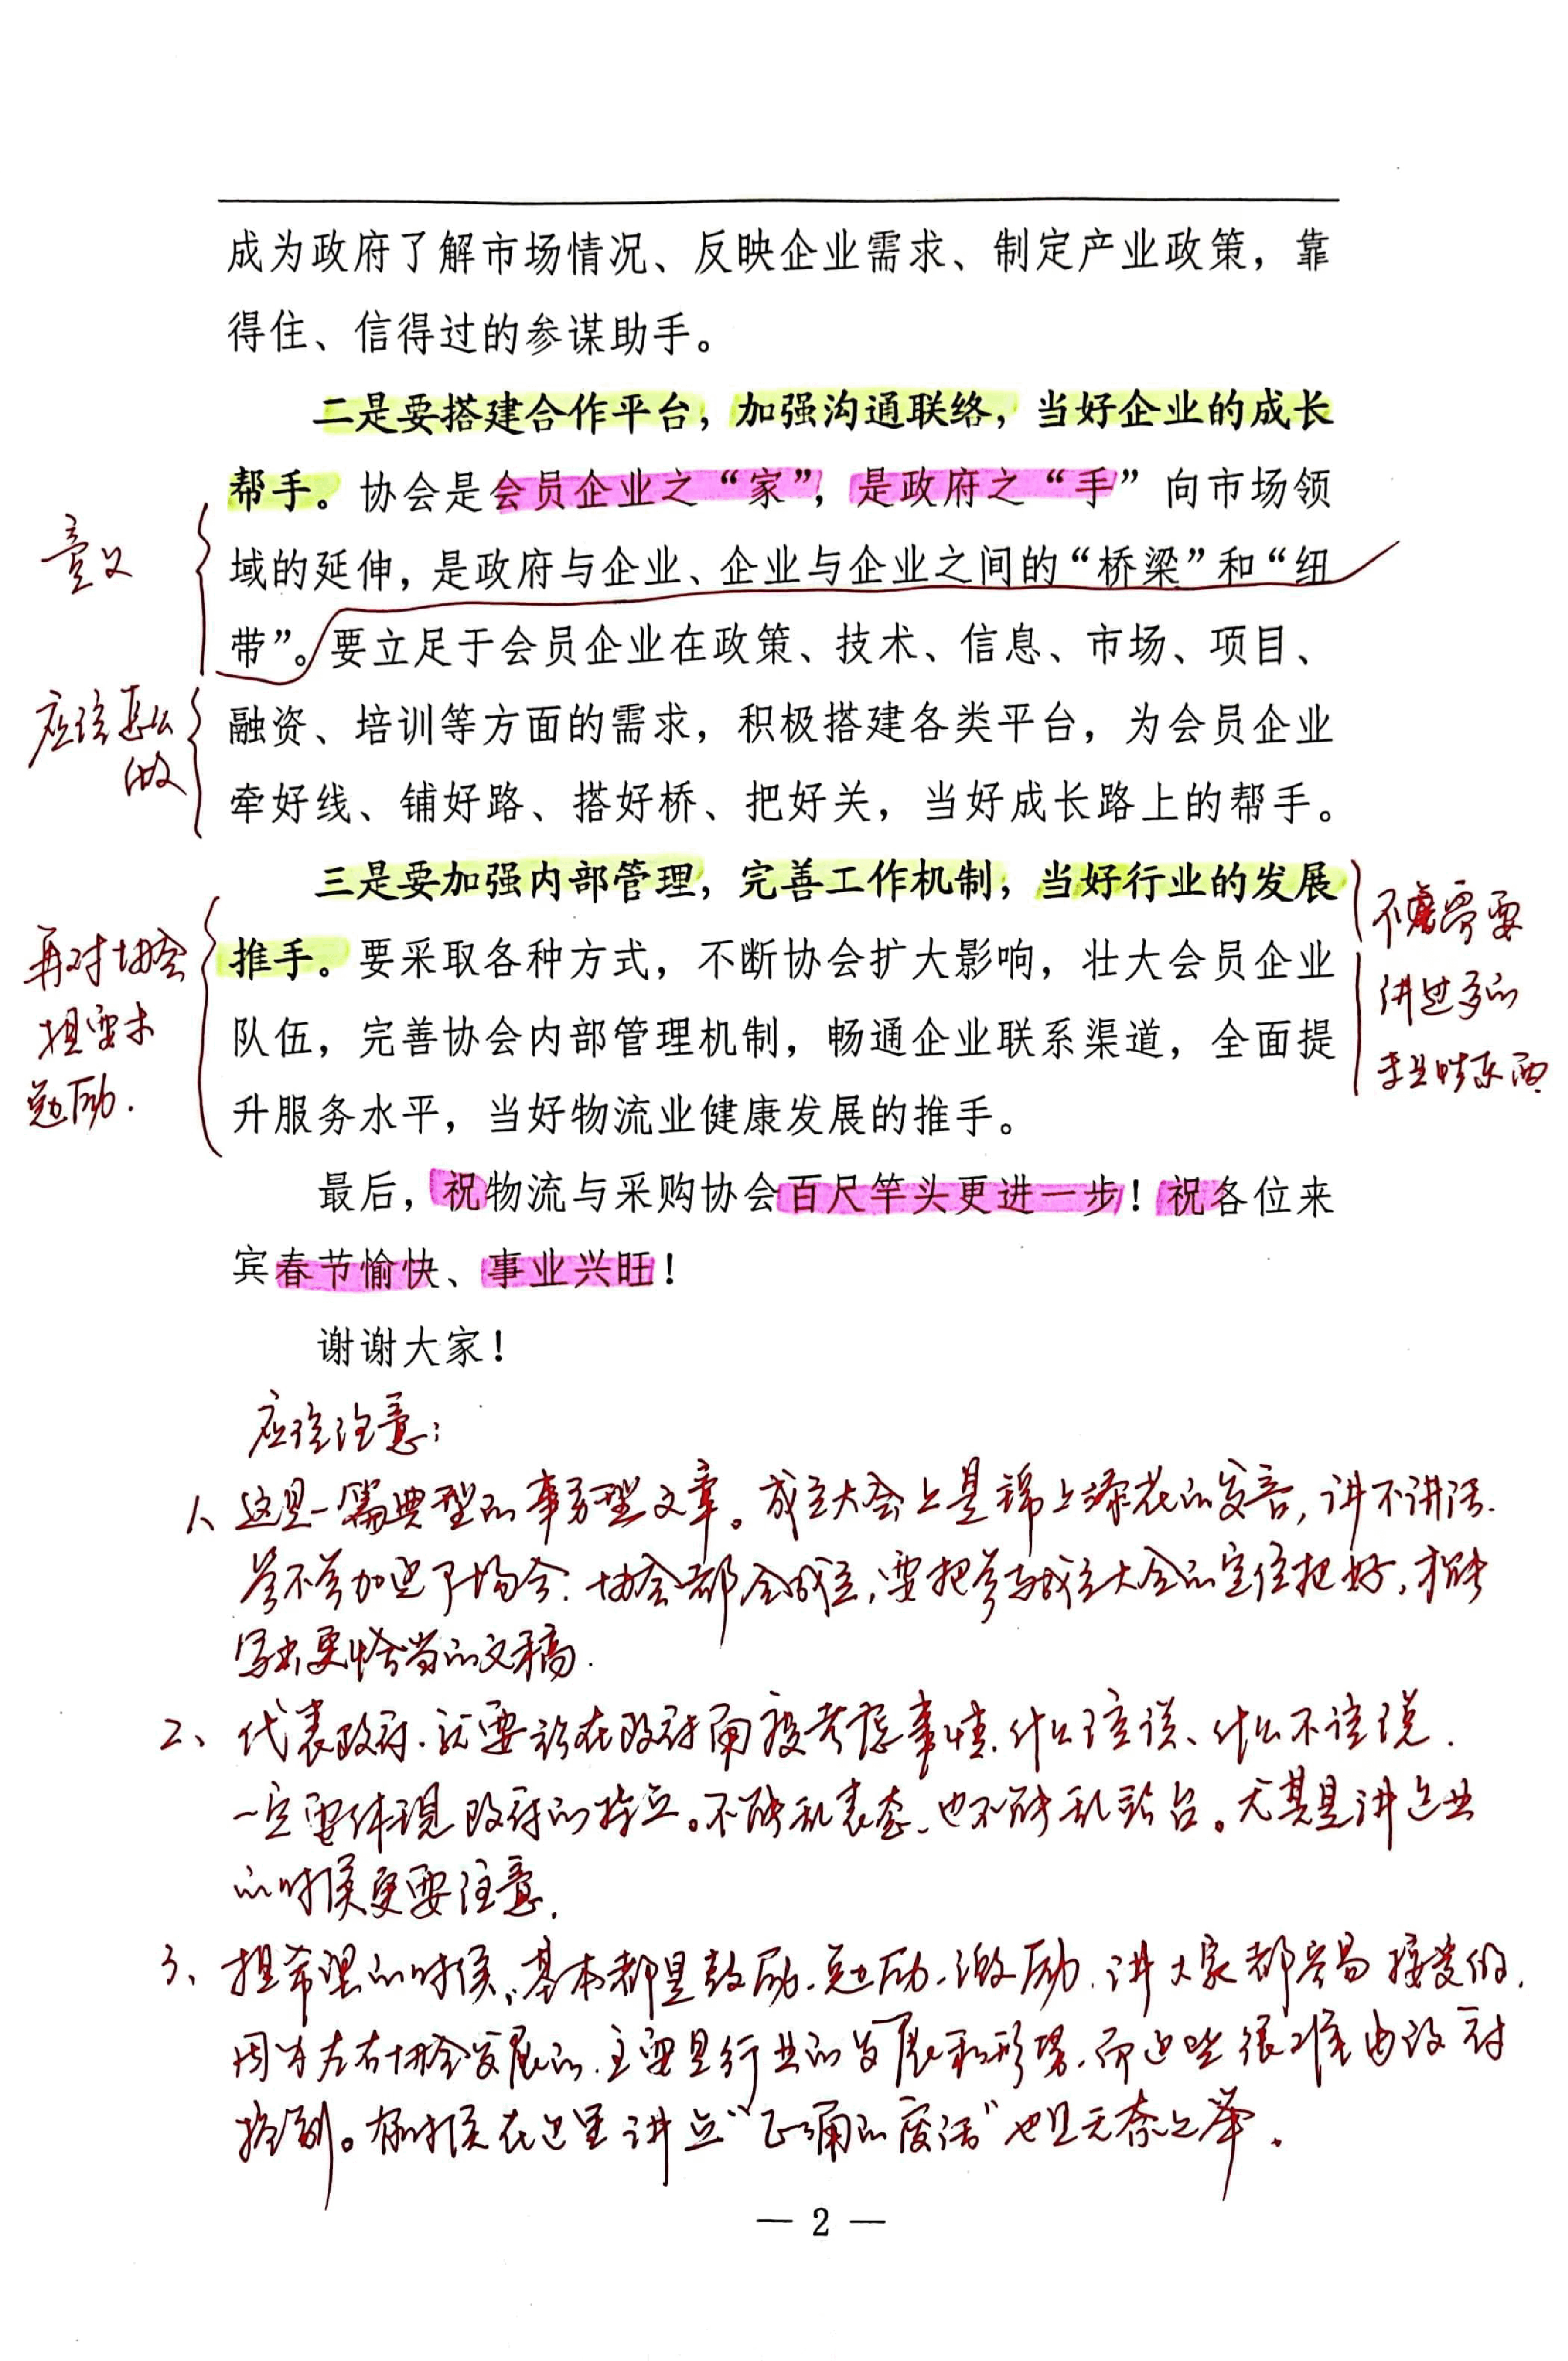 成为政府了解市场情况、反映企业需求、制定产业政策，靠
得住、信得过的参谋助手。
二是要搭建合作平台，加强沟通联络，当好企业的成长
帮手。协会是会员企业之“家”，是政府之“手”向市场领
域的延伸，是政府与企业、企业与企业之间的“桥梁”和“纽
带”。要立足于会员企业在政策、技术、信息、市场、项目、
融资、培训等方面的需求，积极搭建各类平台，为会员企业
牵好线、铺好路、搭好桥、把好关，当好成长路上的帮手。
意义
应该怎么
做
三是要加强内部管理，完善工作机制，当好行业的发展
推手。要采取各种方式，不断协会扩大影响，壮大会员企业
队伍，完善协会内部管理机制，畅通企业联系渠道，全面提
升服务水平，当好物流业健康发展的推手。
再对协会
提要求
勉励.
不需要
讲过多的
专业性东西
最后，祝物流与采购协会百尺竿头更进一步！祝各位来
宾春节愉快、事业兴旺！
谢谢大家！
应该注意：
1、这是一篇典型的事务型文章。成立大会上是锦上添花的发言，讲不讲话.
参不参加这个场合.协会都会成立，要把参与成立大会的定位把好，才能
写出更恰当的文稿.
2、代表政府.就要站在政府角度考虑事情.什么该说、什么不该说.
一定要体现政府的特点。不能乱表态、也不能乱站台。尤其是讲企业
的时候更要注意.
3、提希望的时候，基本都是鼓励、勉励、激励.讲大家都容易接受的.
因为左右协会发展的.主要是行业的发展和形势.而这些很难由政府
控制。有的时候在这里讲点“正确的废话”也是无奈之举.
— 2 —